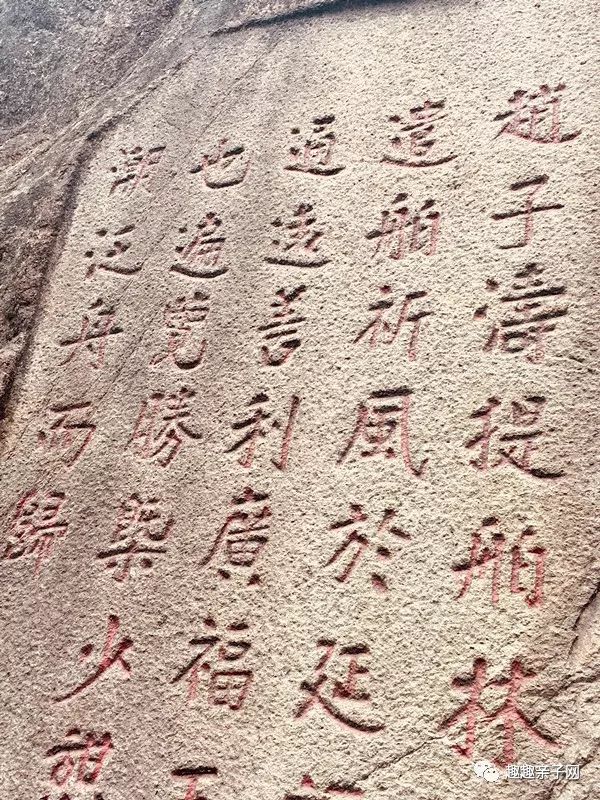 趙子濤提舶林
遣舶祈風於延
通遠善利廣福王
也遍覽勝槩少憩
潮泛舟而歸
趣趣亲子网